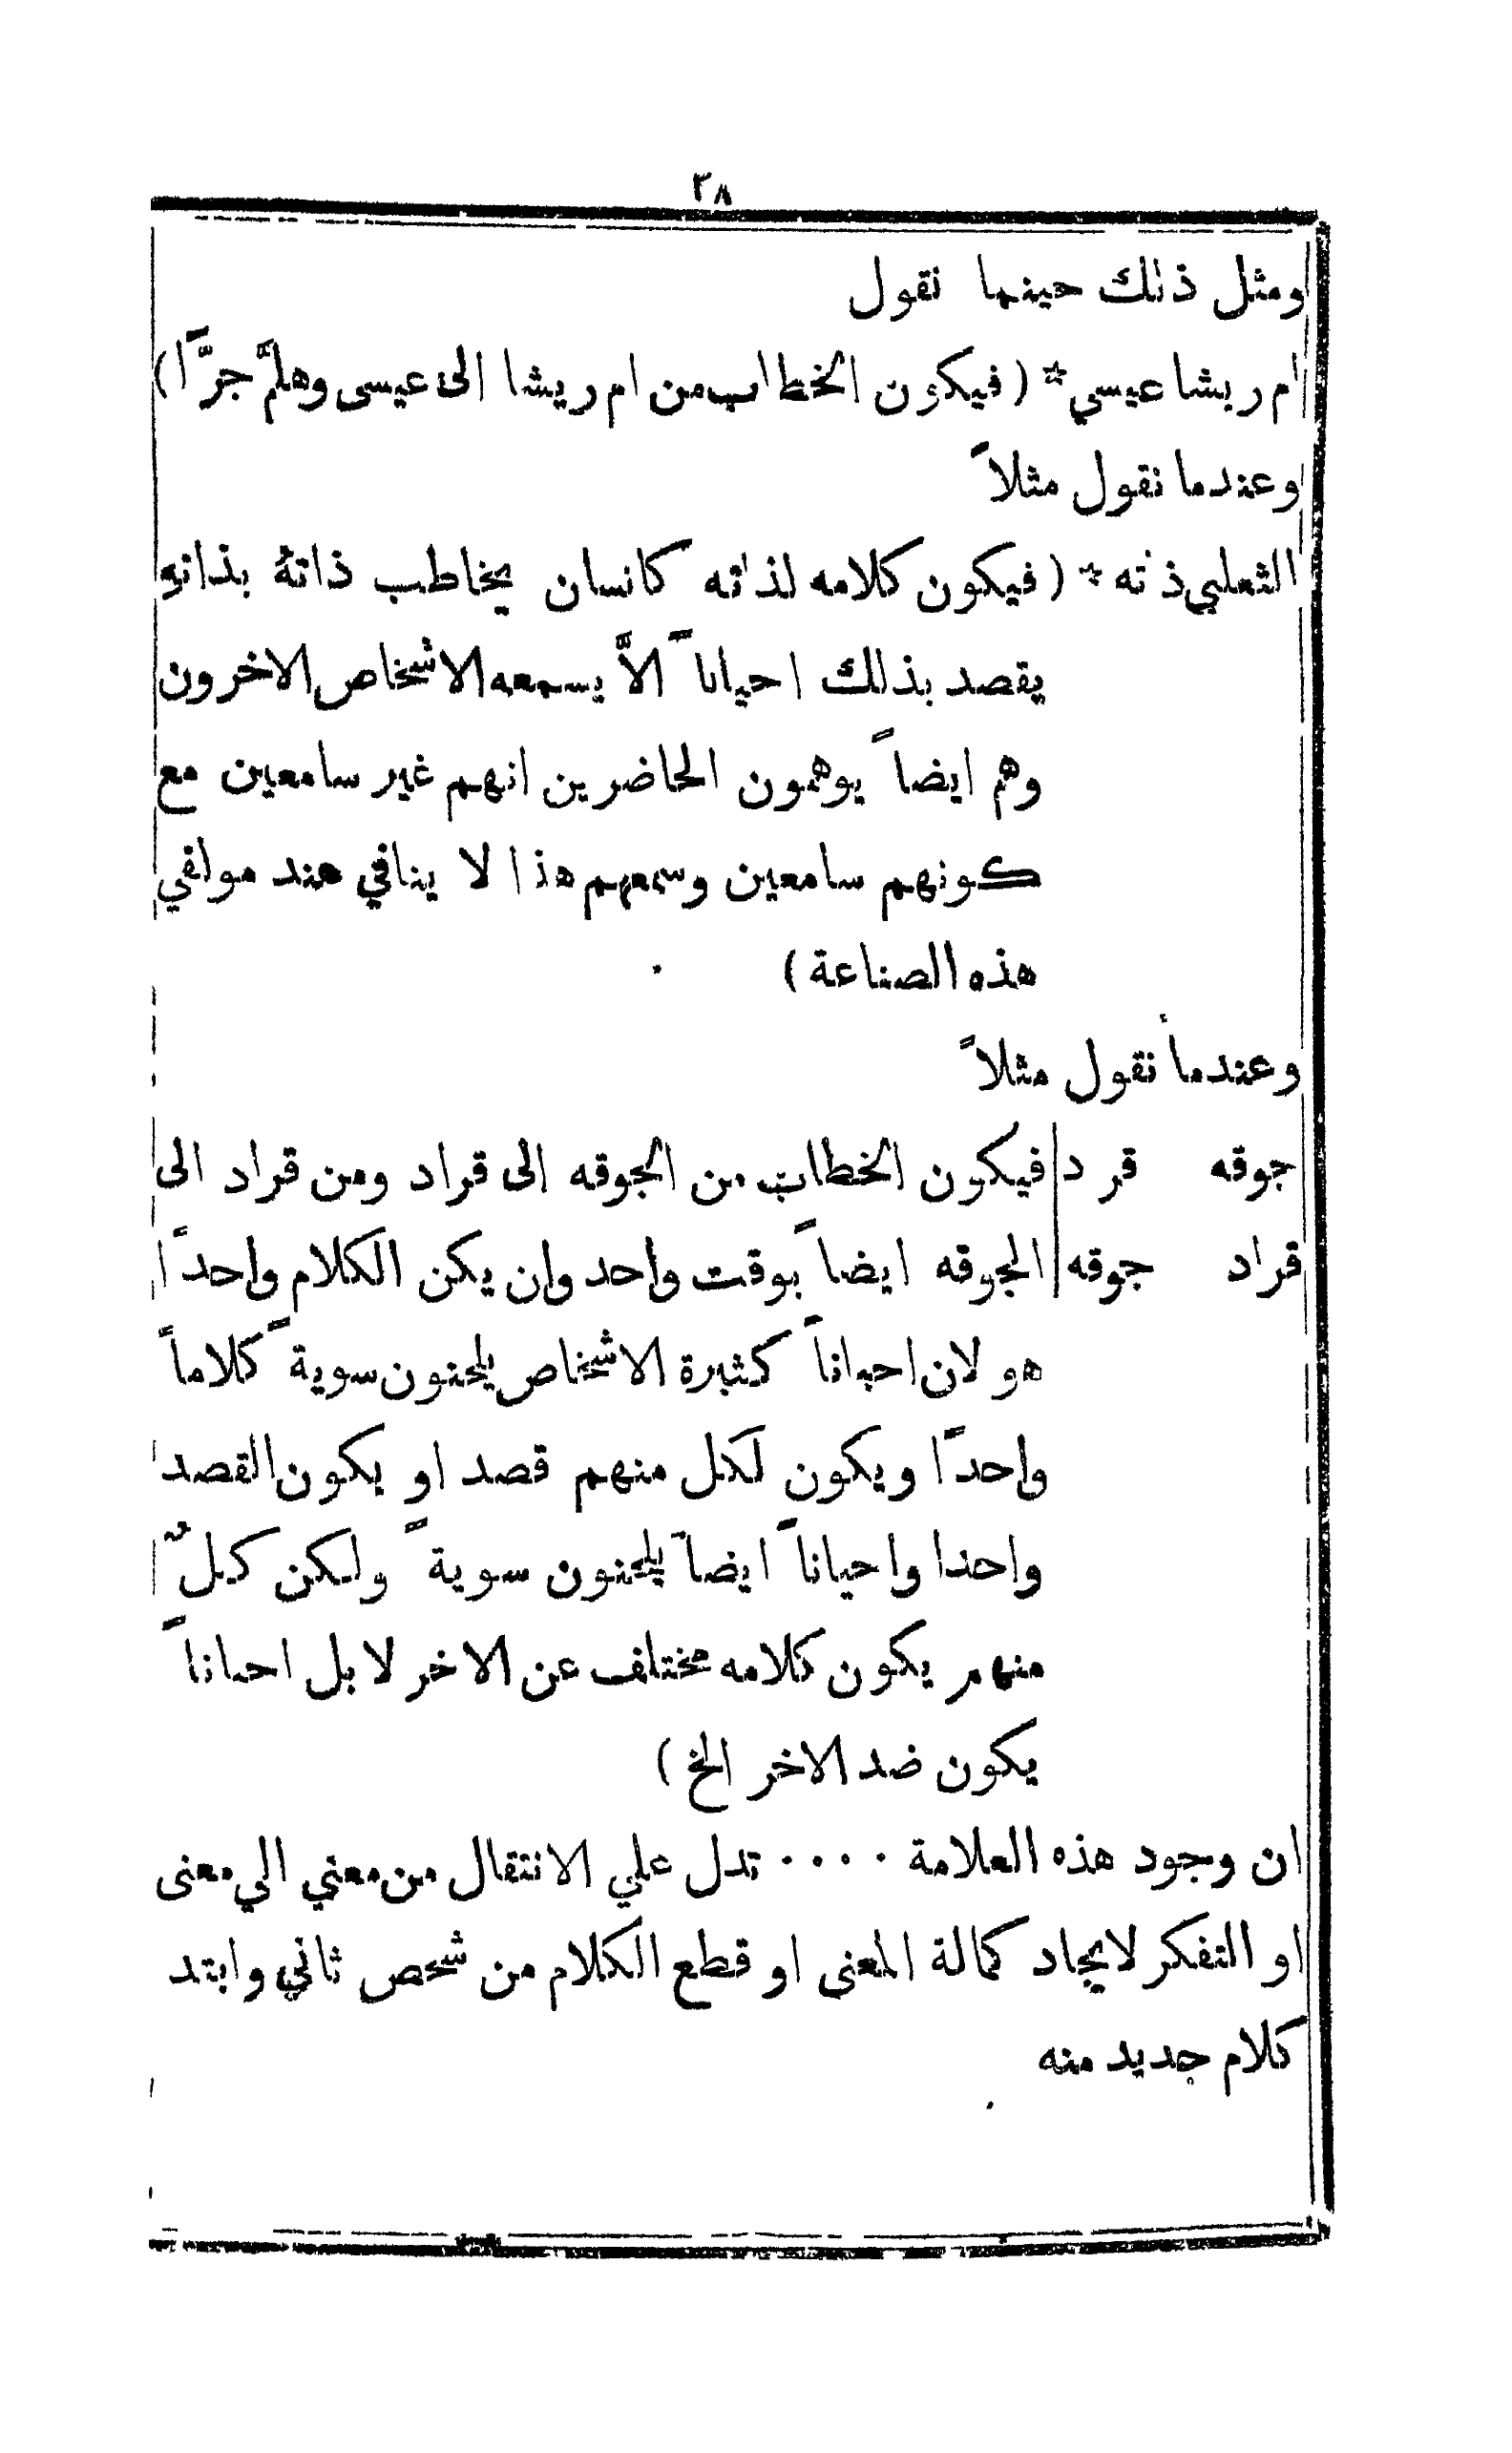 ٣٨
ومثل ذلك حينما نقول
ام ريشا عيسي * ( فيكون الخطاب من ام ريشا الى عيسى وهلمَّ جرًّا )
وعندما نقول مثلاً
الثعلبي ذاته * ( فيكون كلامه لذاته كانسان يخاطب ذاتهُ بذاتهِ
يقصد بذلك احياناً الاَّ يسمعه الاشخاص الاخرون
وهم ايضاً يوهمون الحاضرين انهم غير سامعين مع
كونهم سامعين وسمعهم هذا لا ينافي عند مولفي
هذه الصناعة )
وعندما نقول مثلاً
جوقه قراد فيكون الخطاب من الجوقه الى قراد ومن قراد الى
قراد جوقه الجوقه ايضاً بوقت واحد وان يكن الكلام واحدًا
هو لان احياناً كثيرة الاشخاص يلحنون سويةً كلاماً
واحدًا ويكون لكل منهم قصد او يكون القصد
واحدا واحياناً ايضاً يلحنون سويةً ولكن كلٌ
منهم يكون كلامه مختلف عن الاخر لا بل احياناً
يكون ضد الاخر الخ )
ان وجود هذه العلامة ٠٠٠٠ تدل علي الانتقال من معني الي معنى
او التفكر لايجاد كمالة المعنى او قطع الكلام من شخص ثاني وابتد
كلام جديد منه